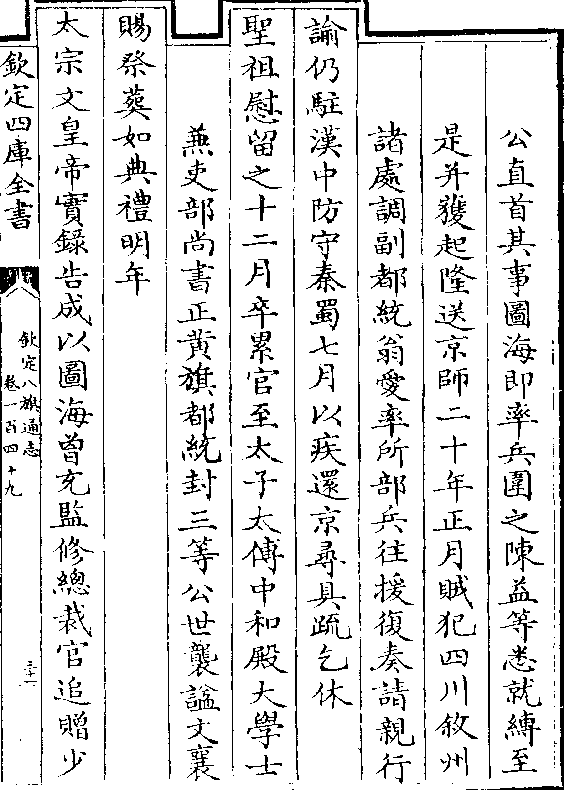 公直首其事圖海即率兵圍之陳益等悉就縛至
是并獲起隆送京師二十年正月賊犯四川敘州
諸處調副都統翁愛率所部兵往援復奏請親行
諭仍駐漢中防守秦蜀七月以疾還京尋具疏乞休
聖祖慰留之十二月卒累官至太子太傅中和殿大學士
兼吏部尚書正黃旗都統封三等公世襲諡文襄
賜祭葬如典禮明年
太宗文皇帝實錄告成以圖海曾充監修總裁官追贈少
欽定四庫全書
欽定八旗通志
卷一百四十九
三十一